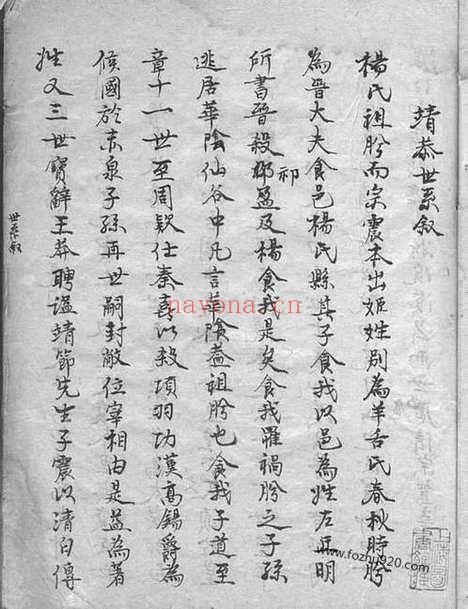 靖恭世系叙
楊氏祖肸而宗震本出姬姓別為羊舌氏春秋時肸
為晉大夫食邑楊氏縣其子食我以邑為姓左丘明
所書晉殺祁盈及楊食我是矣食我罹禍肸之子孫
祁
逃居華陰仙谷中凡言華陰蓋祖肸也食我子道至
章十一世至周欽仕秦喜以殺項羽功漢高錫爵為
侯國於赤泉子孫再世嗣封敞位宰相由是益為著
姓又三世寶辭王莽聘謚靖節先生子震以清白傳
世系叙
nayona.cn
www.fozhu920.com